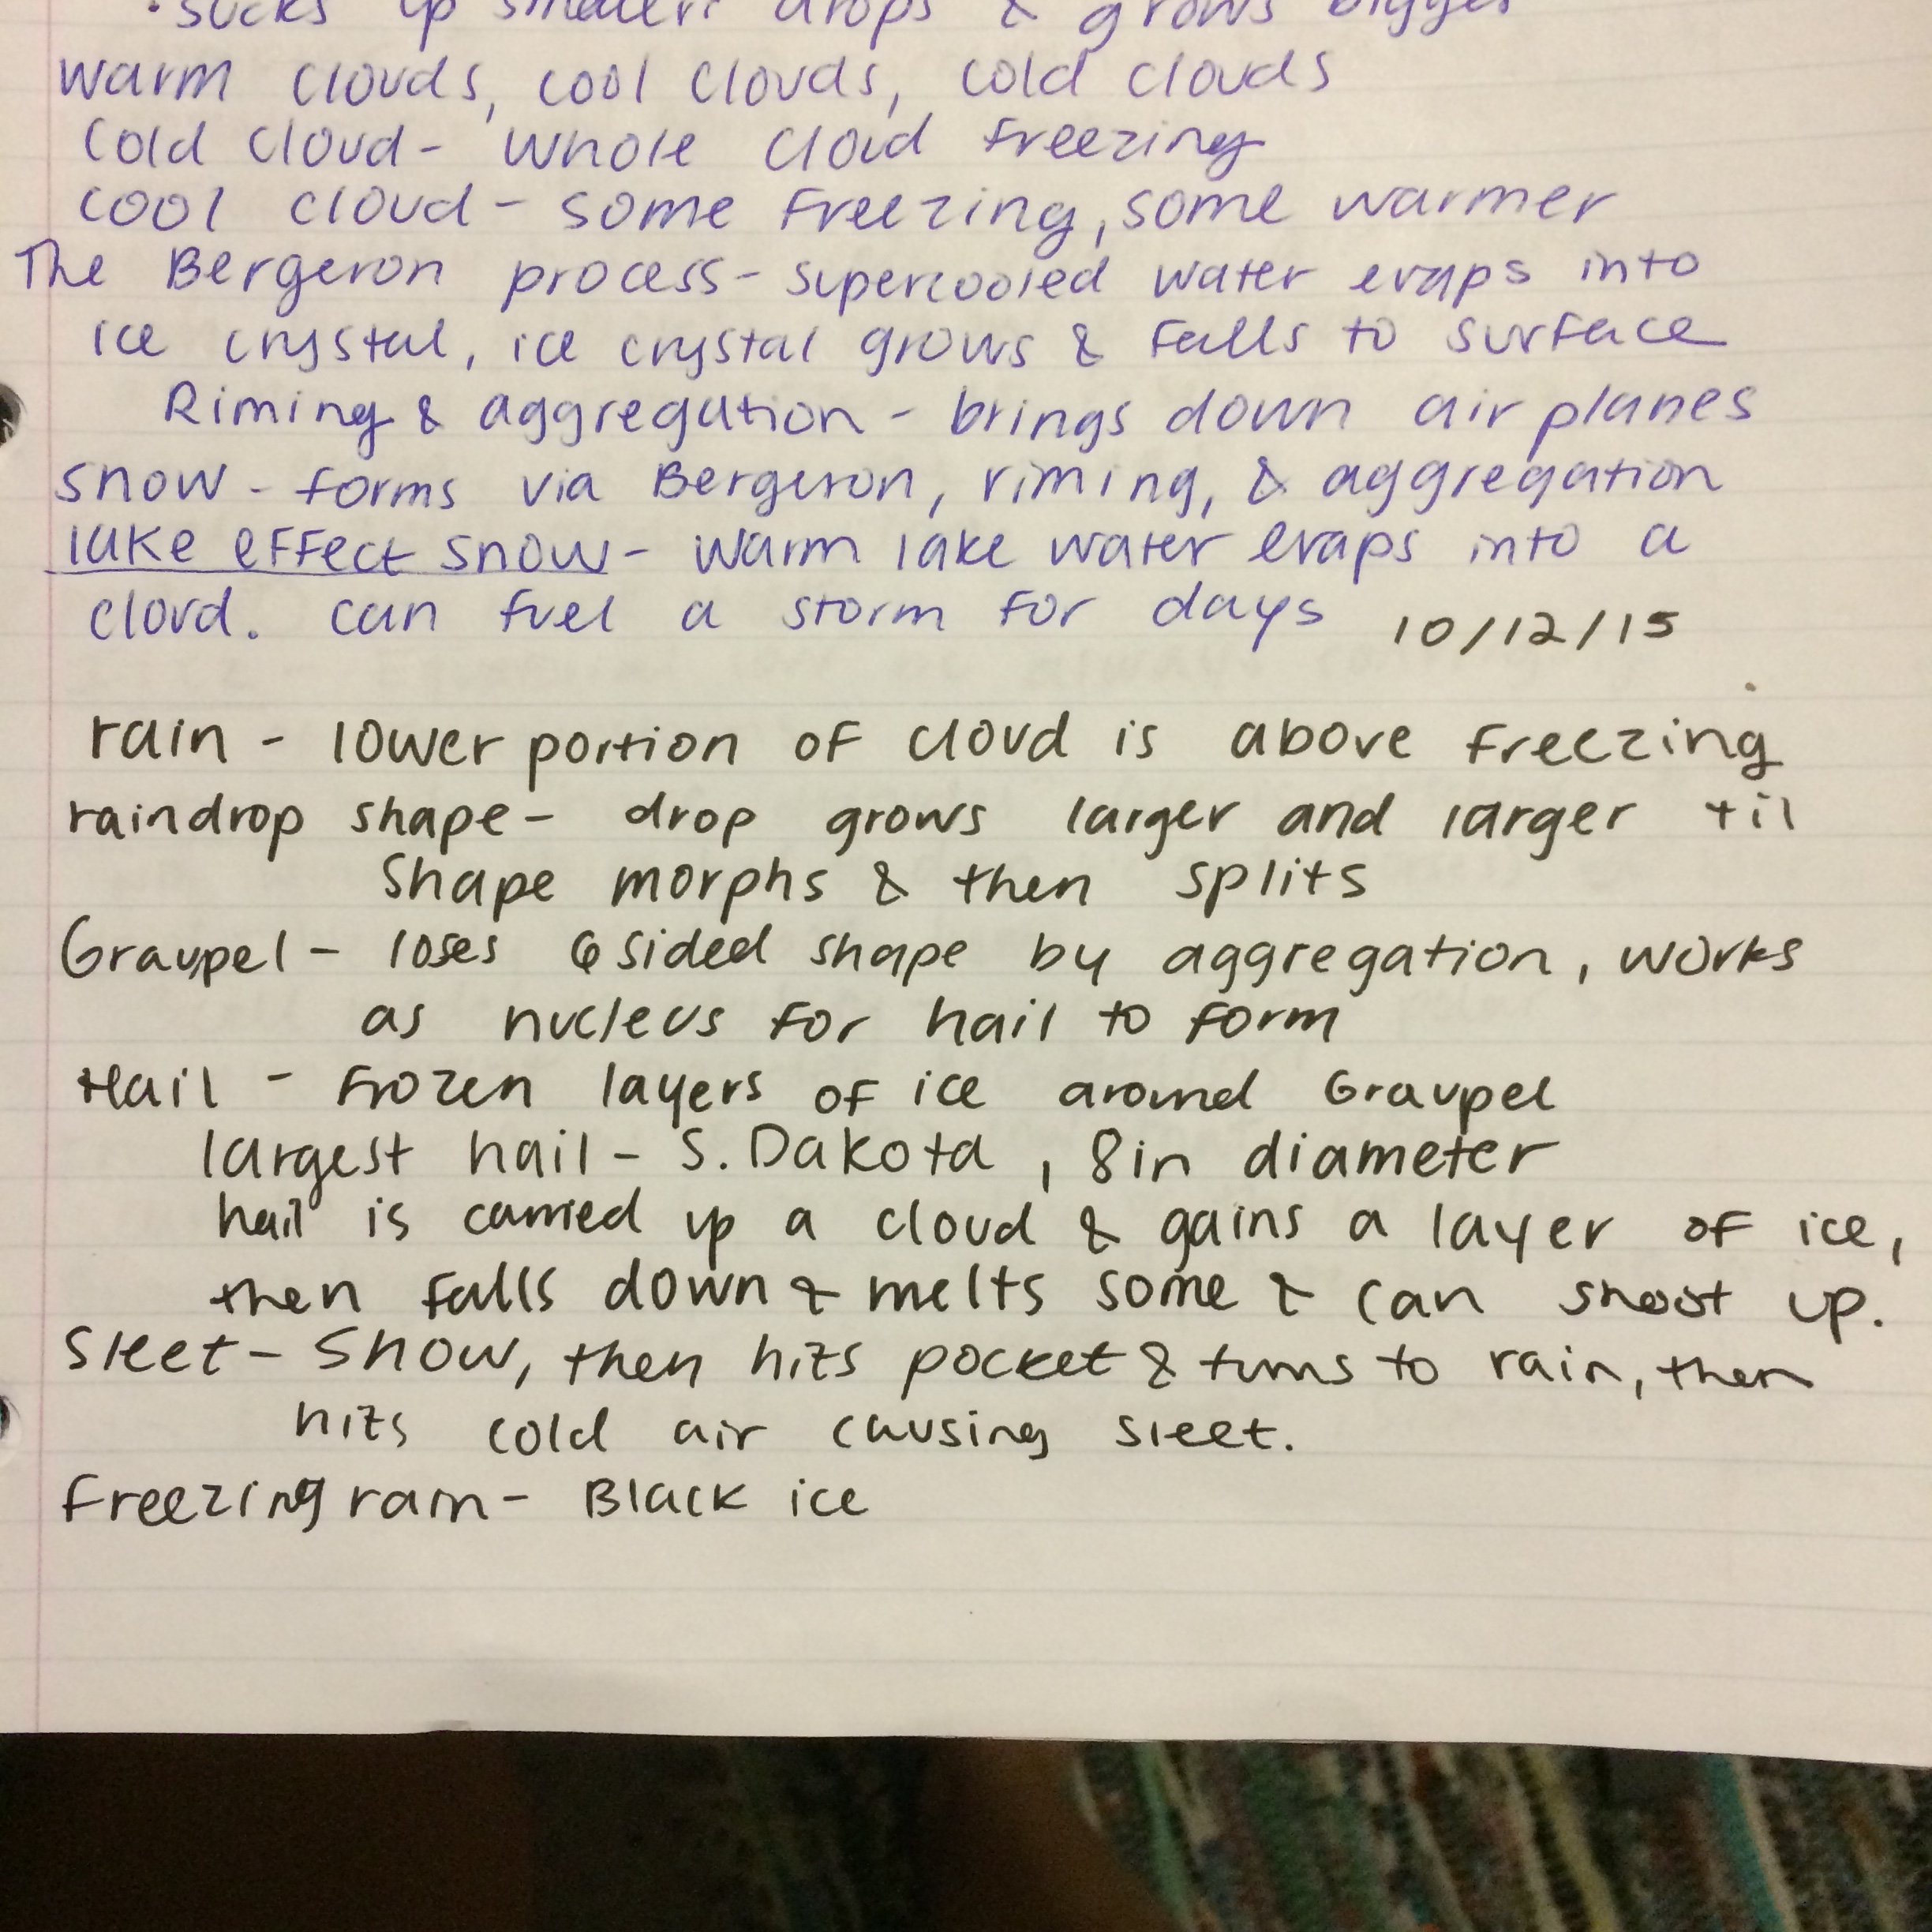 • sucks up smaller drops & grows bigger
warm clouds, cool clouds, cold clouds
cold cloud - whole cloud freezing
cool cloud - some freezing, some warmer
The Bergeron process - supercooled water evaps into
ice crystal, ice crystal grows & falls to surface
Riming & aggregation - brings down air planes
snow - forms via Bergeron, riming, & aggregation
lake effect snow - warm lake water evaps into a
cloud. can fuel a storm for days 10/12/15
rain - lower portion of cloud is above freezing
raindrop shape - drop grows larger and larger til
shape morphs & then splits
Graupel - loses 6 sided shape by aggregation, works
as nucleus for hail to form
Hail - frozen layers of ice around Graupel
largest hail - S. Dakota, 8in diameter
hail is carried up a cloud & gains a layer of ice,
then falls down & melts some & can shoot up.
Sleet - snow, then hits pocket & turns to rain, then
hits cold air causing sleet.
Freezing rain - Black ice